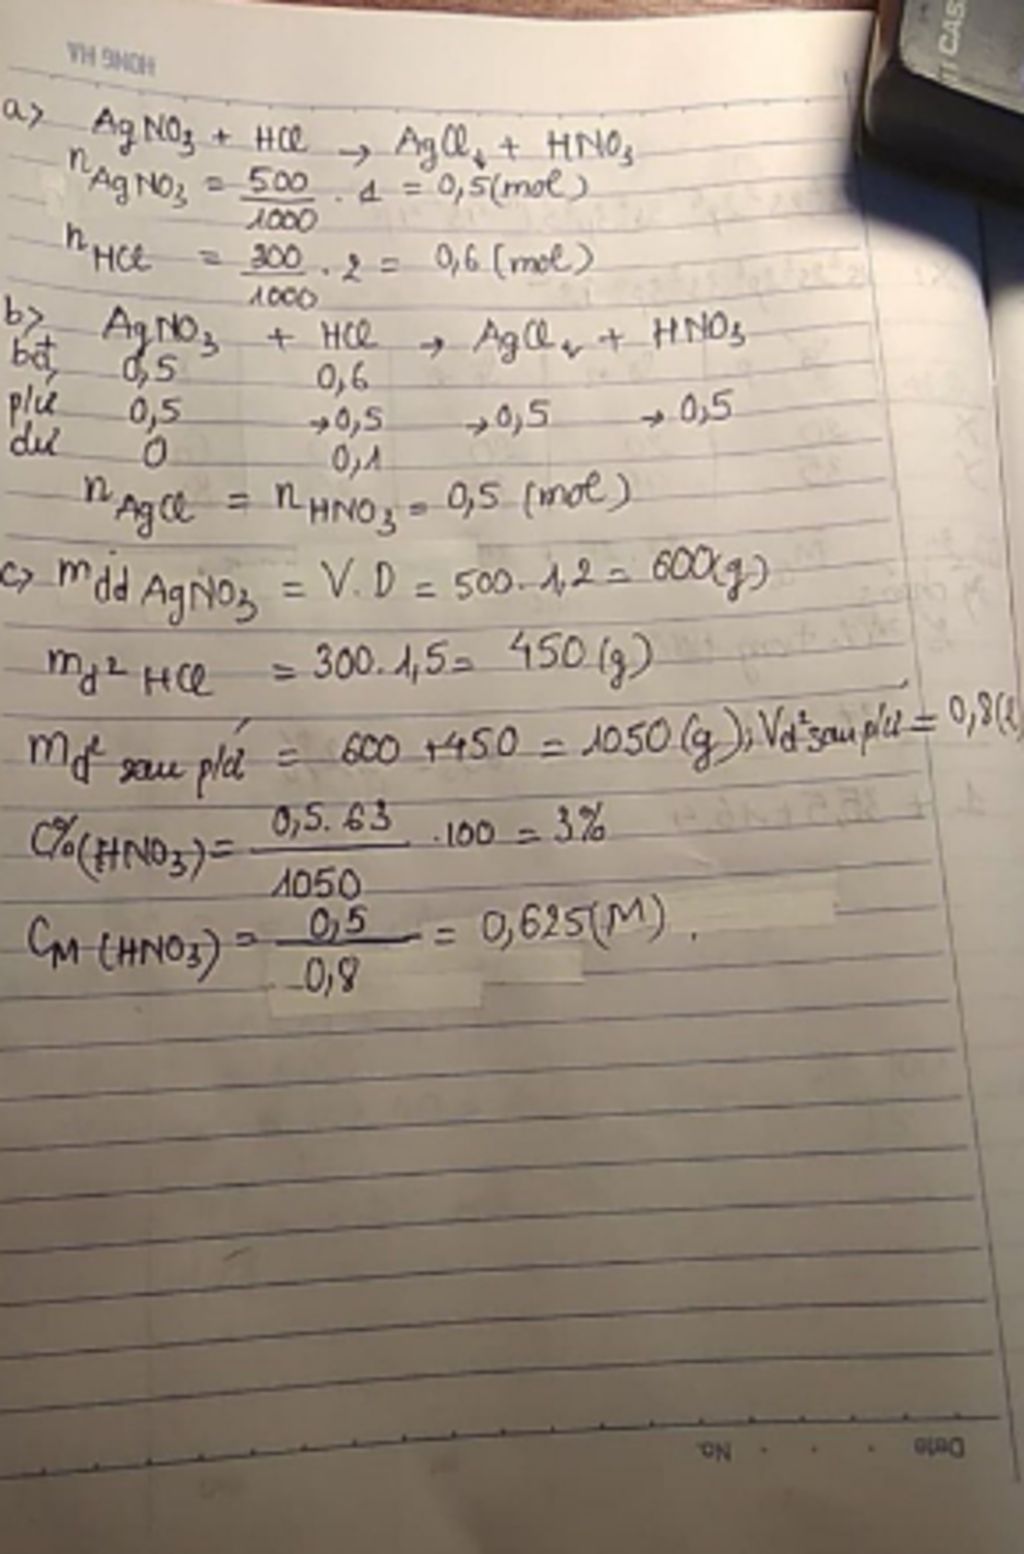 HONG HA
CAS
a> AgNO3 + HCl → AgCl↓ + HNO3
nAgNO3 = 500/1000 . 1 = 0,5(mol)
nHCl = 300/1000 . 2 = 0,6(mol)
b> AgNO3 + HCl → AgCl↓ + HNO3
bđ 0,5 0,6
p/ứ 0,5 →0,5 →0,5 →0,5
dư 0 0,1
nAgCl = nHNO3 = 0,5 (mol)
c> mdd AgNO3 = V.D = 500.1,2 = 600(g)
md² HCl = 300.1,5 = 450(g)
md² sau p/ứ = 600 + 450 = 1050(g); Vd² sau p/ứ = 0,8(l
C%(HNO3) = 0,5.63/1050 .100 = 3%
CM(HNO3) = 0,5/0,8 = 0,625(M).
Date No.